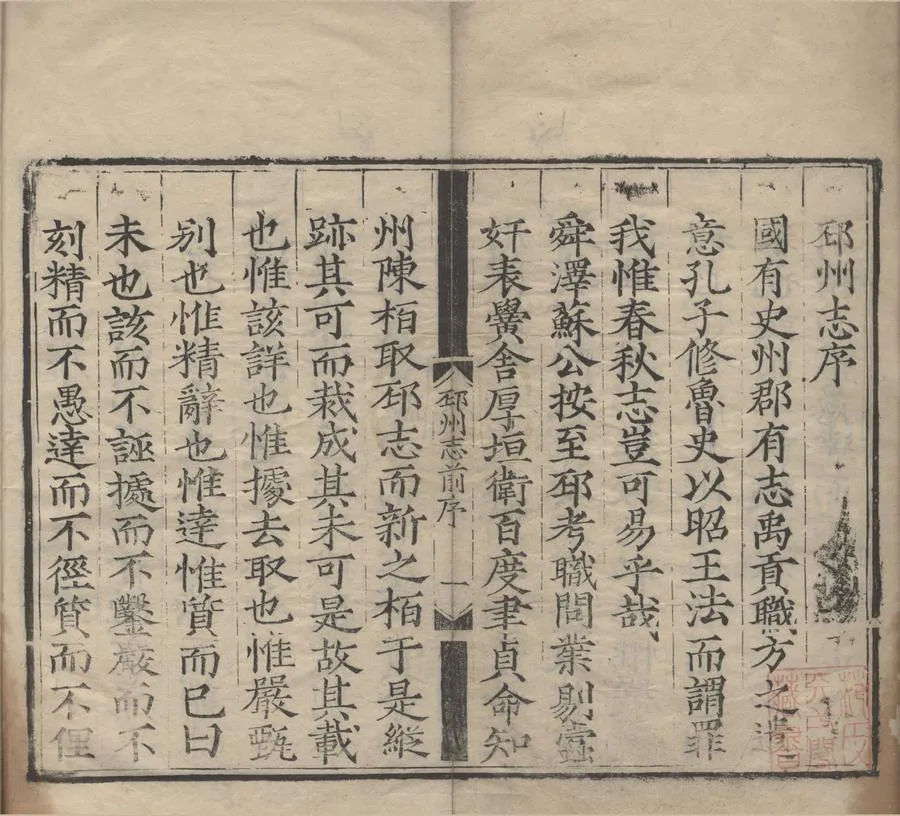 邳州志序
國有史州郡有志禹貢職方之遺
意孔子修魯史以昭王法而謂罪
我惟春秋志豈可易乎哉
舜澤蘇公按至邳考職問業剔蠹
奸表黌舍厚垣衛百度聿貞命知
邳州志前序
一
州陳栢取邳志而新之栢于是縱
跡其可而裁成其未可是故其載
也惟該詳也惟據去取也惟嚴甄
别也惟精辭也惟達惟質而已曰
未也該而不誣據而不鑿嚴而不
刻精而不愚達而不徑質而不俚